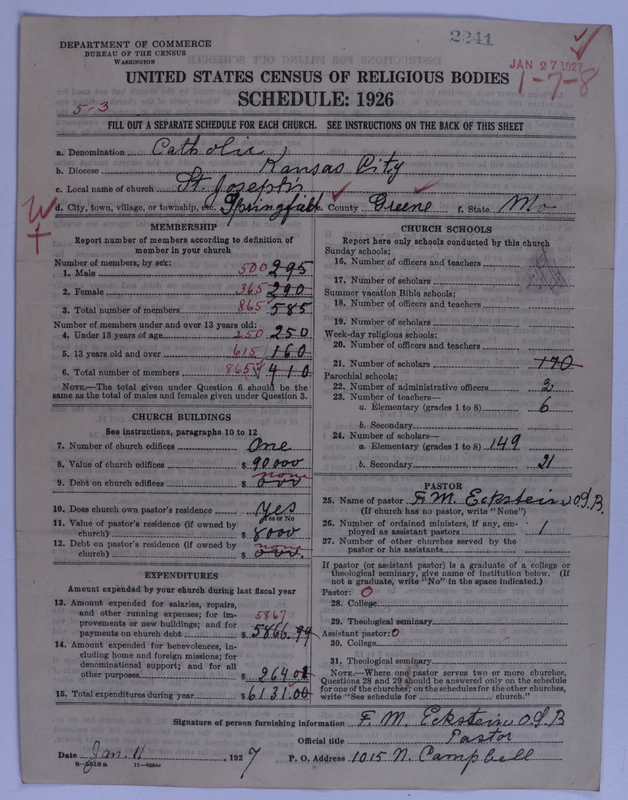 DEPARTMENT OF COMMERCE
BUREAU OF THE CENSUS
WASHINGTON
2241
JAN 27 1927
1-7-8
UNITED STATES CENSUS OF RELIGIOUS BODIES
SCHEDULE: 1926
5-3
FILL OUT A SEPARATE SCHEDULE FOR EACH CHURCH. SEE INSTRUCTIONS ON THE BACK OF THIS SHEET
a. Denomination Catholic
b. Diocese Kansas City
c. Local name of church St. Joseph's
d. City, town, village, or township, etc. Springfield e. County Greene f. State Mo
MEMBERSHIP
Report number of members according to definition of
member in your church
Number of members, by sex:
1. Male 500 295
2. Female 365 290
3. Total number of members 865 585
Number of members under and over 13 years old:
4. Under 13 years of age 250 250
5. 13 years old and over 615 160
6. Total number of members 865 410
NOTE.—The total given under Question 6 should be the
same as the total of males and females given under Question 3.
CHURCH BUILDINGS
See instructions, paragraphs 10 to 12
7. Number of church edifices One
8. Value of church edifices $ 90.000
9. Debt on church edifices $ none 000
10. Does church own pastor's residence yes
Yes or No
11. Value of pastor's residence (if owned by
church) $ 8000
12. Debt on pastor's residence (if owned by
church) $ 000.
EXPENDITURES
Amount expended by your church during last fiscal year
13. Amount expended for salaries, repairs,
and other running expenses; for im-
provements or new buildings; and for
payments on church debt 5867 $ 5866.99
14. Amount expended for benevolences, in-
cluding home and foreign missions; for
denominational support; and for all
other purposes $ 264.01
15. Total expenditures during year $ 6131.00
CHURCH SCHOOLS
Report here only schools conducted by this church
Sunday schools:
16. Number of officers and teachers
17. Number of scholars
Summer vacation Bible schools:
18. Number of officers and teachers
19. Number of scholars
Week-day religious schools:
20. Number of officers and teachers
21. Number of scholars 170
Parochial schools:
22. Number of administrative officers 2
23. Number of teachers—
a. Elementary (grades 1 to 8) 6
b. Secondary
24. Number of scholars—
a. Elementary (grades 1 to 8) 149
b. Secondary 21
PASTOR
25. Name of pastor F. M. Eckstein O.S.B.
(If church has no pastor, write "None")
26. Number of ordained ministers, if any, em-
ployed as assistant pastors 1
27. Number of other churches served by the
pastor or his assistants
If pastor (or assistant pastor) is a graduate of a college or
theological seminary, give name of institution below. (If
not a graduate, write "No" in the space indicated.)
Pastor: 0
28. College
29. Theological seminary
Assistant pastor: 0
30. College
31. Theological seminary
NOTE.—Where one pastor serves two or more churches,
Questions 28 and 29 should be answered only on the schedule
for one of the churches; on the schedules for the other churches,
write "See schedule for church."
Signature of person furnishing information F. M. Eckstein O.S.B
Official title Pastor
Date Jan. 11, 1927
P. O. Address 1015 N. Campbell